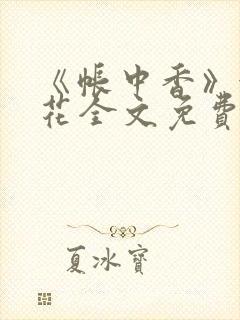 《帐中香》
花全文免費
夏冰寶